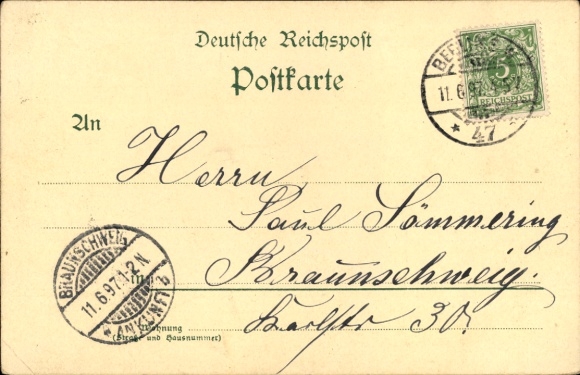 Deutsche Reichspost
Postkarte
BERLIN
5
11.6.97
REICHSPOST
* 47 *
An
Herrn
Paul Sömmering
in Braunschweig.
Karlstr 30.
Wohnung
(Straße und Hausnummer)
BRAUNSCHWEIG
11.6.97.1-2N.
* ANKUNFT